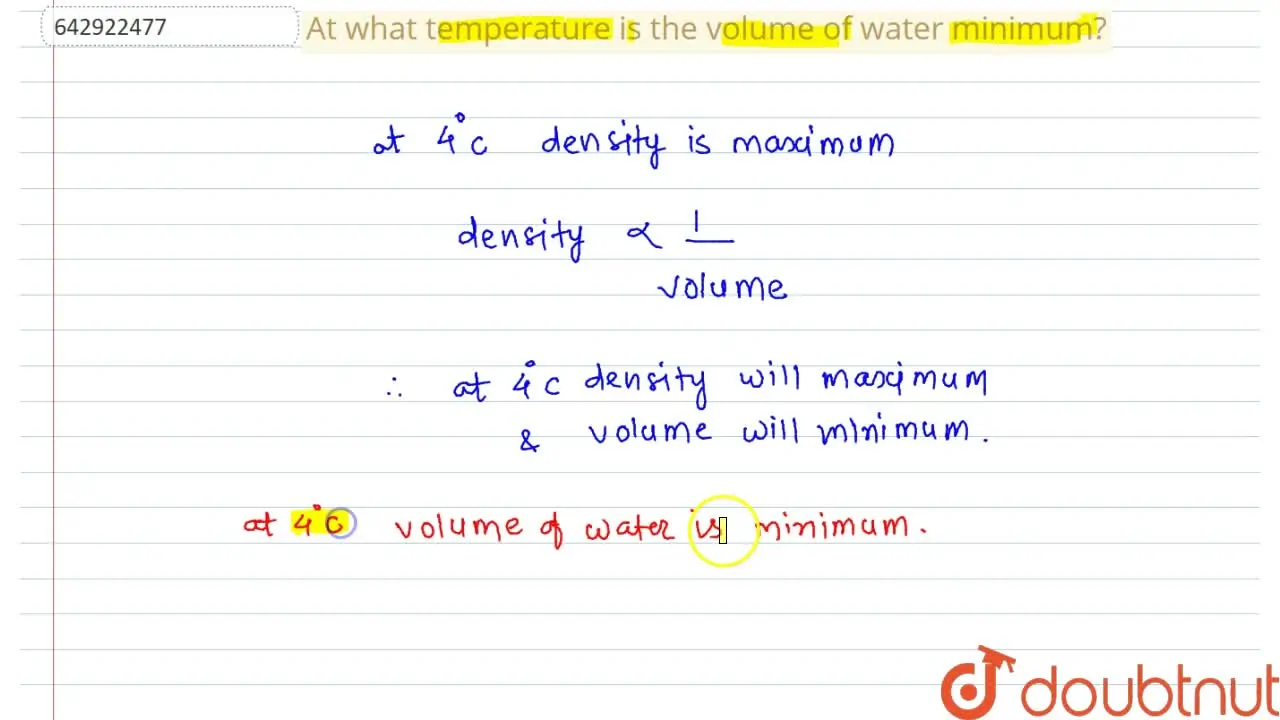 642922477 At what temperature is the volume of water minimum?
at 4°C density is maximum
density ∝ 1
volume
∴ at 4°C density will maximum
& volume will minimum.
at 4°C volume of water is minimum.
doubtnut